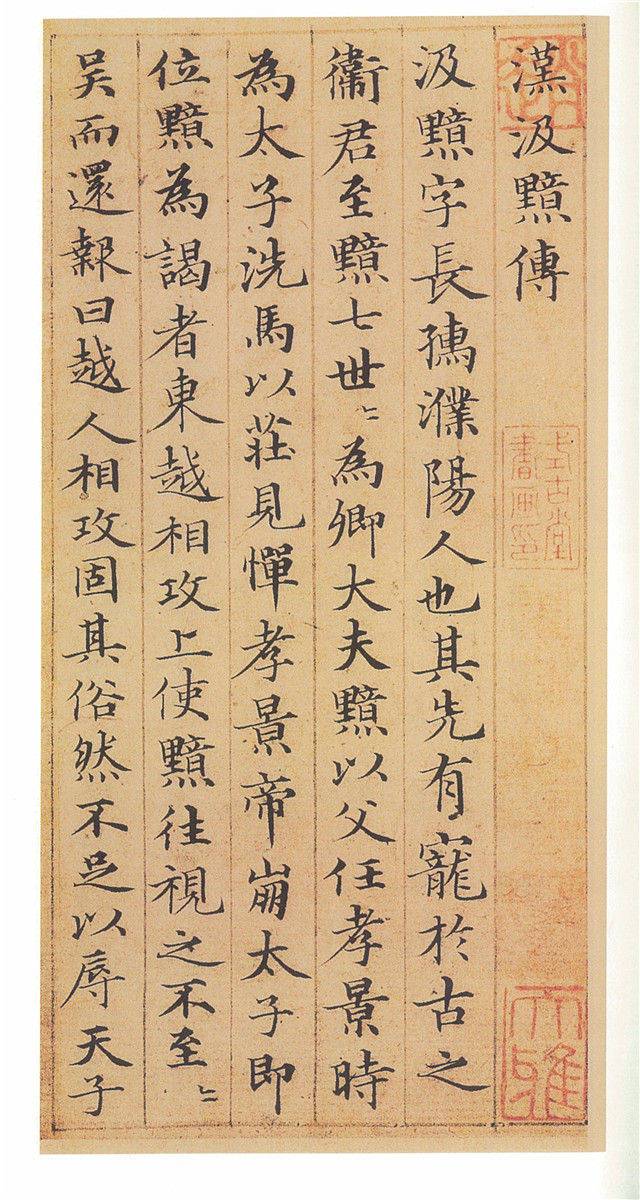 漢汲黯傳
式古堂
書畫印
大雅
汲黯字長孺濮陽人也其先有寵於古之
衛君至黯七世〻為卿大夫黯以父任孝景時
為太子洗馬以莊見憚孝景帝崩太子即
位黯為謁者東越相攻上使黯往視之不至〻
吳而還報曰越人相攻固其俗然不足以辱天子